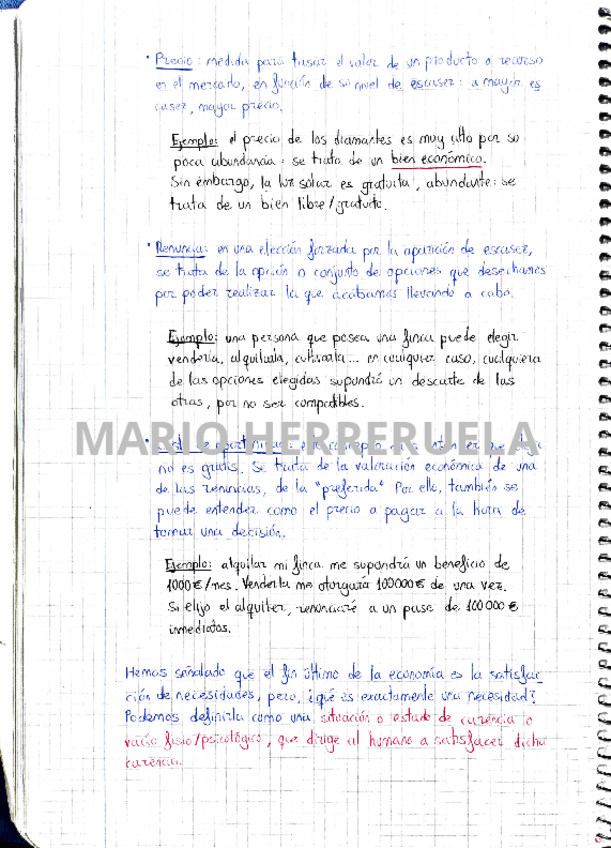 · Precio: medida para tasar el valor de un producto o recurso
en el mercado, en función de su nivel de escasez: a mayor es
casez, mayor precio.
Ejemplo: el precio de los diamantes es muy alto por su
poca abundancia: se trata de un bien económico.
Sin embargo, la luz solar es gratuita, abundante: se
trata de un bien libre/gratuito.
· Renuncia: en una elección forzada por la aparición de escasez,
se trata de la opción o conjunto de opciones que desechamos
por poder realizar la que acabamos llevando a cabo.
Ejemplo: una persona que posea una finca puede elegir
venderla, alquilarla, cultivarla... en cualquier caso, cualquiera
de las opciones elegidas supondrá un descarte de las
otras, por no ser compatibles.
MARIO HERRERUELA
no es gratis. Se trata de la valoración económica de una
de las renuncias, de la "preferida" Por ello, también se
puede entender como el precio a pagar a la hora de
tomar una decisión.
Ejemplo: alquilar mi finca me supondrá un beneficio de
1000€/mes. Venderla me otorgará 100000€ de una vez.
Si elijo el alquiler, renunciaré a un pase de 100000€
inmediatos.
Hemos señalado que el fin último de la economía es la satisfac
ción de necesidades, pero, ¿qué es exactamente una necesidad?
Podemos definirla como una situación o estado de carencia o
vacío fisio/psicológico, que dirige al humano a satisfacer dicha
carencia.